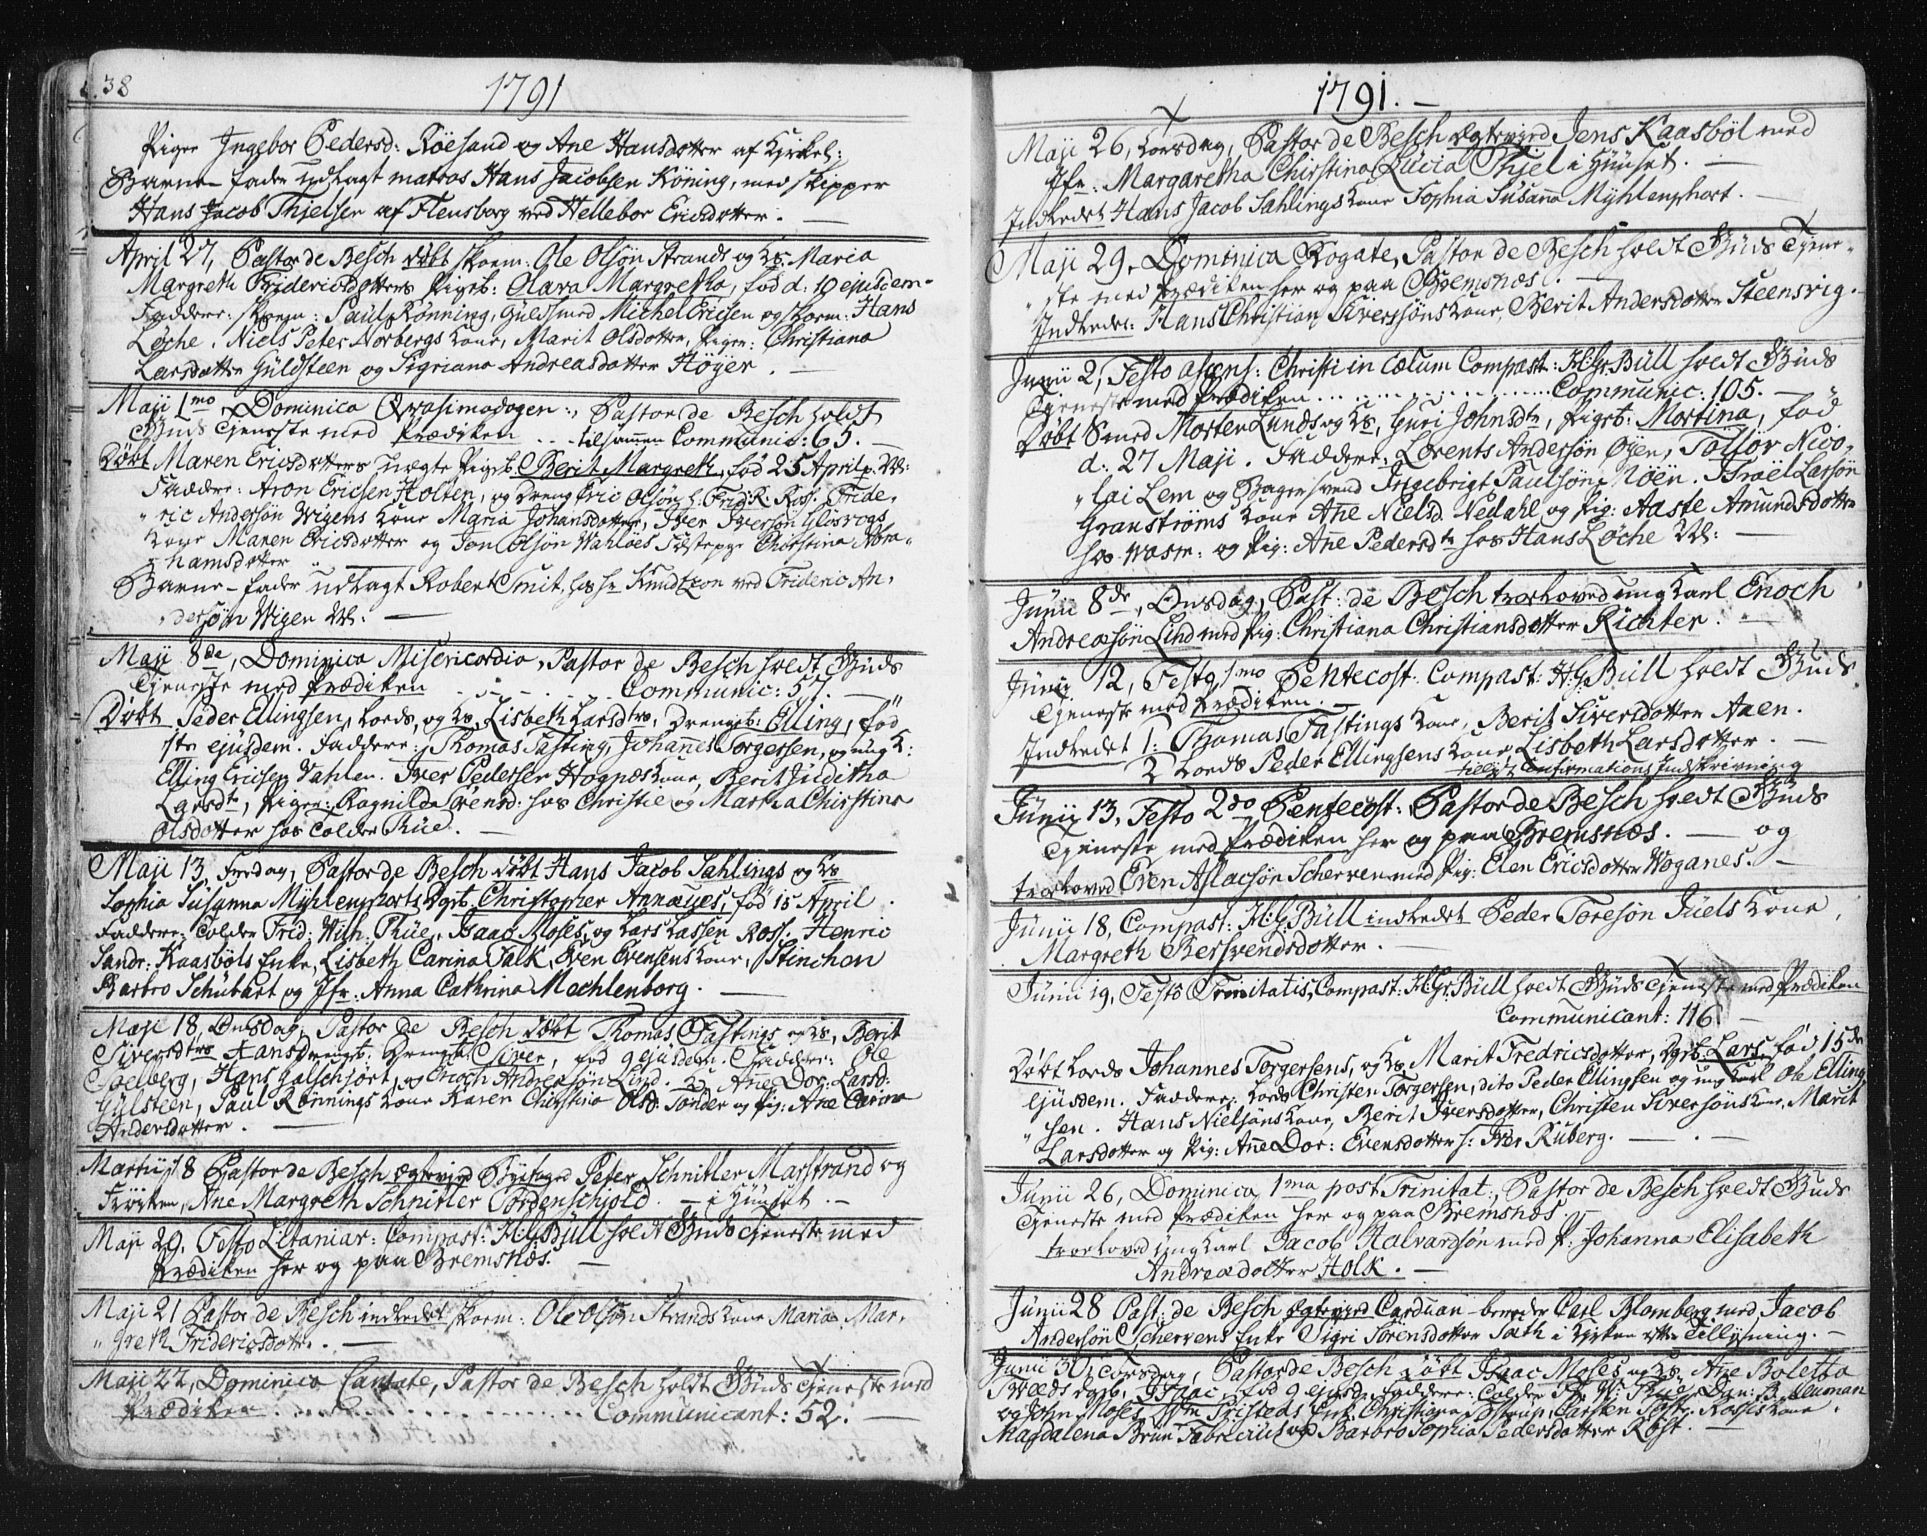 38
1791
Piger Ingebor Pedersd: Röesand og Ane Hansdotter af Kirkel:
Barne-fader udlagt matros Hans Jacobsen Köning, med skipper
Hans Jacob Thjelsen af Flensborg ved Hellebor Ericsdotter. —
April 27, Pastor de Besch döbt skoem: Ole Olsön Strands og Hs: Maria
Margreth Fridericsdotters Pigeb: Olava Margretha, föd d: 19 ejusdem.
Faddere: skoem: Paul Rönning, Guldsmed Michel Ericsen og skoem: Hans
Löche. Niels Peter Norbergs Kone, Marit Olsdotter, Piger: Christiana
Larsdotter Güldsteen og Sigriana Andreasdotter Höyer. —
Maji 1mo, Dominica Qvasimodogen:, Pastor de Besch holdt
Guds Tjeneste med Prædiken . . . tilsamen Communic: 65. —
Döbt Maren Ericsdotters uægte Pigeb. Berit Margreth, föd 25 April p. W:
Faddere: Aron Ericsen Holten, og Dreng Eric Olsön h. Fridr: Ross. Fride-
ric Andersön Wigens Kone Maria Johansdotter, Iver Iversön Glösvogs
Kone Maren Ericsdotter og Jon Olsön Wahlöes Föstepge Christina Abra-
hamsdotter
Barne-fader udlagt Robert Smit, hos hr Knudtzon ved Frideric An-
dersön Wigen W. —
Maji 8de, Dominica Misericordia, Pastor de Besch holdt Guds
Tjeneste med Prædiken . . . . . Communic: 57. —
Döbt Peder Ellingsen, Lords, og Hs Lisbeth Larsdtrs, Drengeb: Elling, föd
1ste ejusdem. Faddere: Thomas Fasting, Johannes Torgersen, og ung K:
Elling Ericsen Vahlen. Iver Pedersen Hognæs Kone, Berit Juditha
Larsdtr, Piger: Ragnilda Sörensd: hos Christie og Martha Christina
Olsdotter hos Tolder Rüe. —
Maji 13, Fredag, Pastor de Besch döbt Hans Jacob Sahlings og Hs
Sophia Susanna Mÿhlenphorts Dgb: Christopher Annæus, föd 15 April.
Faddere: Tolder Frid: Wilh: Rüe, Isaac Moses, og Lars Lassen Ross. Henric
Sandr: Kaasböls Enke, Lisbeth Carina Falk, Even Evensens Kone, Stinchen
Barbro Schübart og Jfr: Anna Cathrina Mechlenborg. —
Maji 18, Onsdag, Pastor de Besch döbt Thomas Fastings og Hs, Berit
Siversdtrs Drengeb: Siver, föd 9 ejusdem. Faddere: Ole
Hans Galschjört, og Enoch Andreasön Lind. Ane Dor: Larsd:
Gülsteen, Paul Rönnings Kone Karen Christina Olsd: Sönder og Pig: Ane Carina
Andersdotter. —
Martii 18 Pastor de Besch ægteviet Byefoged Peter Schnitler Marstrand og
Fröiken, Ane Margreth Schnitler Tordenschjold. — i Huuset. —
Maji 20, Festo Litaniar: Compast: H: Gr: Büll holdt Guds Tjeneste med
Prædiken her og paa Bremsnæs. —
Maji 21 Pastor de Besch indledet skoem: Ole Olsön Strands Kone Maria Mar-
greth Fridericsdotter. —
Maji 22, Dominica Cantate, Pastor de Besch holdt Guds Tjeneste med
Prædiken . . . . . . . . . . Communicant: 52. —
1791. —
Maji 26, Torsdag, Pastor de Besch ægteviet Jens Kaasböl med
Jfr: Margaretha Christina Lucia Thjel i Huuset. —
Indledet Hans Jacob Sahlings Kone Sophia Susana Mÿhlenphort. —
Maji 29, Dominica Rogate, Pastor de Besch holdt Guds Tjene-
ste med Prædiken her og paa Bremsnæs. —
Indledet: Hans Christian Siversöns Kone, Berit Andersdotter Steensvig. —
Junii 2, Festo ascens: Christi in cælum Compast: H: Gr: Büll holdt Guds
Tjeneste med Prædiken . . . . . . . . Communic: 105. —
Döbt Smed Morten Lunds og Hs, Guri Johnsdtr, Pigeb: Mortina, föd
d: 27 Maji. Faddere: Lorents Andersön Öyen, Tollor Nico-
lai Lem og Bagersvend Ingebrigt Paulsön Möen. Israel Larsön
Granströms Kone Ane Nielsd: Nedahl og Pig: Aaste Amundsdotter
hos Wasm: og Pig: Ane Pedersdtr hos Hans Löche W: —
Junii 8de, Onsdag, Past: de Besch trolovede ung Karl Enoch
Andreasön Lind med Pig: Christiana Christiansdotter Richter. —
Junii 12, Festo 1mo Pentecost: Compast: H: G: Büll holdt Guds
Tjeneste med Prædiken. —
Indledet 1: Thomas Fastings Kone, Berit Siversdotter Aaen.
2 Lords Peder Ellingsens Kone Lisbeth Larsdotter. —
tillyst Confirmations Indskrivning
Junii 13, Festo 2do Pentecost: Pastor de Besch holdt Guds
Tjeneste med Prædiken her og paa Bremsnæs. — og
trolovede Even Aslacsön Scherven med Pig: Elen Ericsdotter Woganes. —
Junii 18, Compast: H: G: Büll indledet Peder Toresön Juels Kone,
Margreth Bersvendsdotter. —
Junii 19, Festo Trinitatis, Compast: H: Gr: Büll holdt Guds Tjeneste med Prædiken
Communicant: 116. —
Döbt Lords Johannes Torgersens, og Hs, Marit Fredricsdotter, Dgb: Lars, föd 15de
ejusdem. Faddere: Lords Christen Torgersen, dito Peder Ellingsen og ung Karl Ole Elling-
sen. Hans Nielsöns Kone, Berit Iversdotter, Christen Siversöns Kone, Marit
Larsdotter og Pig: Ane Dor: Evensdotter h: Iver Ruberg. —
Junii 26, Dominica 1ma post Trinitat:, Pastor de Besch holdt Guds
Tjeneste med Prædiken her og paa Bremsnæs
trolovede ung Karl Jacob Halvardsön med P: Johanna Elisabeth
Andreædotter Holk. —
Junii 28 Past: de Besch ægteviet Carduan-bereder Carl Blomberg med Jacob
Andersön Schervens Enke Sigri Sörensdotter Sæth i Kirken efter Tillysning. —
Junii 30, Torsdag, Pastor de Besch döbt Isaac Moses og Hs Ane Bolettæ
Dgb: Isaac, föd 9 ejusd: Faddere: Tolder Fr: W: Rüe, Dan: B. Neuman
og John Moses, Enk: Christiana Tostrup, Carsten Kone
Magdalena Brun Fabricius og Barbro Sophia Pedersdotter Röst. —